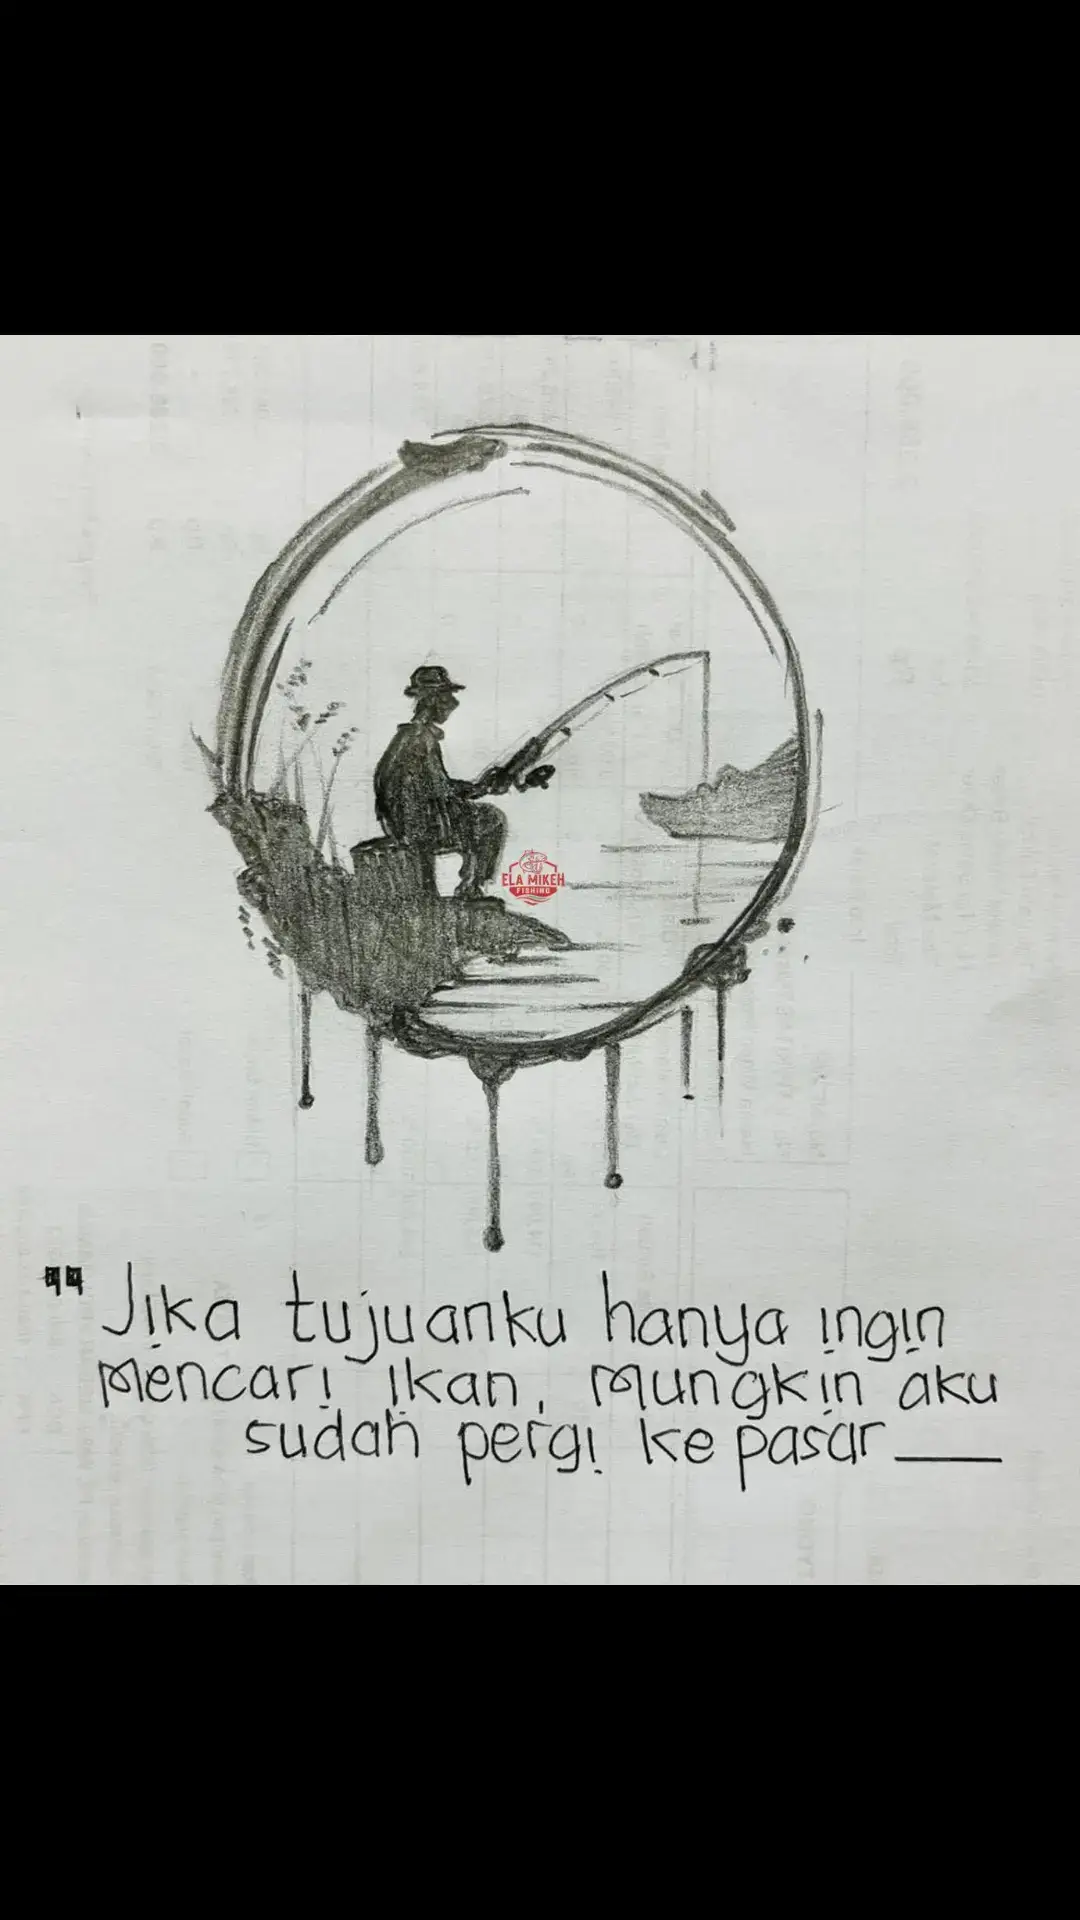 ELA MIKEH
FISHING
"Jika tujuanku hanya ingin
mencari ikan, mungkin aku
sudah pergi ke pasar